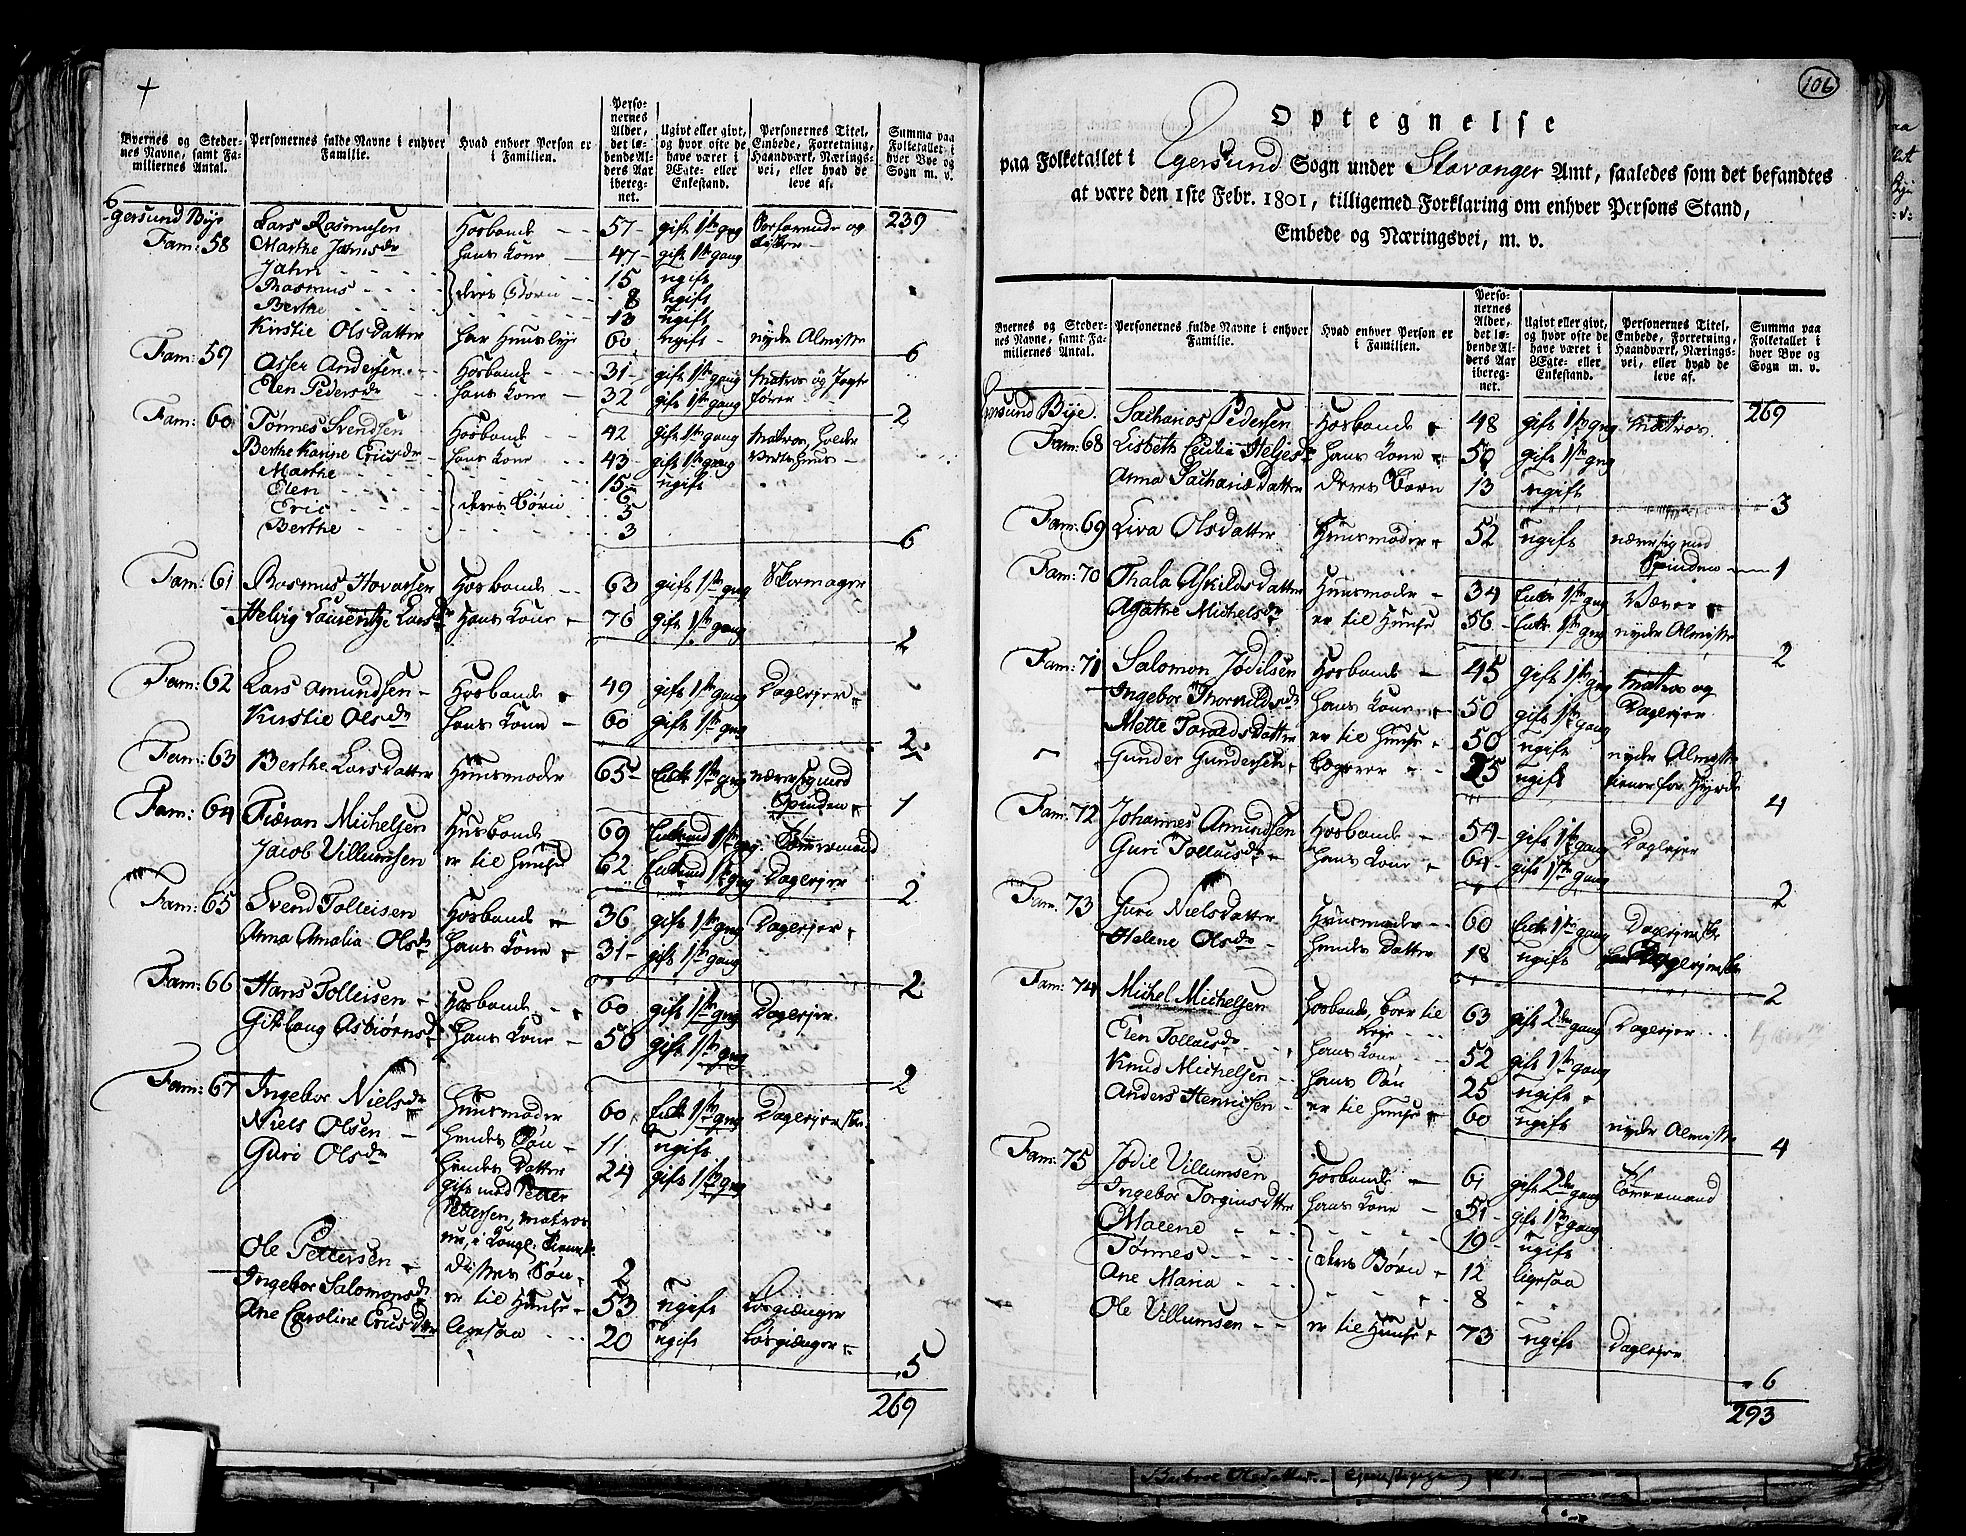 Byernes og Steder-
nes Navne, samt Fa-
miliernes Antal.
Personernes fulde Navne i enhver
Familie.
Hvad enhver Person er
i Familien.
Perso-
nernes
Alder,
det lø-
bende Al-
ders Aar
ibereg-
net.
Ugivt eller givt,
og hvor ofte de
have været i
Ægte- eller
Enkestand.
Personernes Titel,
Embede, Forretning,
Haandværk, Nærings-
vei, eller hvad de
leve af.
Summa paa
Folketallet i
hver Bye og
Sogn m. v.
Egersund Bye Lars Rasmusen Hosbonde 57 gift 1ste gang 239
Fam: 58 Marthe Jahnsdr hans Kone 47 gift 1ste gang
Jahn 15 ugift
Rasmus deres Børn 8 ugift
Berthe 13 ugift
Kirstie Olsdatter 60 ugift nyder Almisse
6
Fam: 59 Asser Andersen Hosbonde 31 gift 1ste gang Matros og Jagte
Elen Pedersdr hans Kone 32 gift 1ste gang fører
2
Fam: 60 Tønnes Svendsen Hosbonde 42 gift 1ste gang Matros, holder
Berthe Karine Ericsdr hans Kone 43 gift 1ste gang Vertshuus
Marthe 15 ugift
Elen 6
Eric deres Børn 5
Berthe 3
6
Fam: 61 Rasmus Hovarsen Hosbonde 63 gift 1ste gang Skoemager
Helvig Laurentze Larsdr Hans Kone 76 gift 1ste gang
2
Fam: 62 Lars Amundsen Hosbonde 49 gift 1ste gang Dagleyer
Kirstie Olsdr hans Kone 60 gift 1ste gang
2
Fam: 63 Berthe Larsdatter Huusmoder 65 Enke 1ste gang nærer sig med
Spinden 1
Fam: 64 Michelsen Husbonde 69 Enkemand 1ste gang Tømmermand
Jacob Villumsen er til Huuse 62 Enkemand 1ste gang Dagleyer
2
Fam: 65 Svend Tolleisen Hosbonde 36 gift 1ste gang Dagleyer
Anna Amalia Olsdr hans Kone 31 gift 1ste gang
2
Fam: 66 Hans Tolleisen Hosbonde 60 gift 1ste gang Dagleyer
Asbiørnsdr hans Kone 50 gift 1ste gang
2
Fam: 67 Ingebor Nielsdr Huusmoder 60 Enke 1ste gang Dagleyerske
Niels Olsen hendes Søn 11 ugift
Guri Olsdr hendes Datter 24 gift 1ste gang
gift med Petter
Pettersen, matros
Ole Pettersen Søn 2
Ingebor Salomonsdr er til Huuse 53 ugift Løsgiænger
Ane Caroline Ericsdtr ligesaa 20 ugift Løsgiænger
5
269
106
Optegnelse
paa Folketallet i Egersund Sogn under Stavanger Amt, saaledes som det befandtes
at være den 1ste Febr. 1801, tilligemed Forklaring om enhver Persons Stand,
Embede og Næringsvei, m. v.
Byernes og Steder-
nes Navne, samt Fa-
miliernes Antal.
Personernes fulde Navne i enhver
Familie.
Hvad enhver Person er
i Familien.
Perso-
nernes
Alder,
det lø-
bende Al-
ders Aar
ibereg-
net.
Ugivt eller givt,
og hvor ofte de
have været i
Ægte- eller
Enkestand.
Personernes Titel,
Embede, Forretning,
Haandværk, Nærings-
vei, eller hvad de
leve af.
Summa paa
Folketallet i
hver Bye og
Sogn m. v.
Egersund Bye. Sacharias Pedersen Hosbonde 48 gift 1ste gang Matros 269
Fam: 68 Lisbeth Cecilia Heljesdr hans Kone 50 gift 1ste gang
Anna Sachariasdatter deres Barn 13 ugift
3
Fam: 69 Liva Olsdatter Huusmoder 52 ugift nærer sig med
Spinden 1
Fam: 70 Thala Askildsdatter Huusmoder 34 Enke 1ste gang Væver
Agathe Michelsdr er til Huuse 56 Enke 1ste gang nyder Almisse
2
Fam: 71 Salomon Jødilsen Hosbonde 45 gift 1ste gang Matros og
Ingebor Thorkildsdr hans Kone 50 gift 1ste gang Dagleyer
Mette Taraldsdatter er til Huuse 50 ugift nyder Almisse
Gunder Gundersen Logerer 25 ugift tiener for Hyrde
4
Fam: 72 Johannes Amundsen Hosbonde 54 gift 1ste gang Dagleyer
Guri Tolleisdr hans Kone 64 gift 1ste gang
2
Fam: 73 Guri Nielsdatter Huusmoder 60 Enke 1ste gang Dagleyerske
Helene Olsdr hendes Datter 18 ugift Dagleyerske
2
Fam: 74 Michel Michelsen Hosbonde, boer til 63 gift 2den gang Dagleyer
Leje
Elen Tolleisdr hans Kone 52 gift 1ste gang
Knud Michelsen hans Søn 25 ugift
Anders Henricsen er til Huuse 60 ugift nyder Almisse
4
Fam: 75 Jødil Villumsen Hosbonde 61 gift 2den gang Tømmermand
Ingebor Torgiusdtter hans Kone 51 gift 1ste gang
Malene 19 ugift
Tønnes deres Børn 12 ligesaa
Ane Maria 8
Ole Villumsen er til Huuse 73 ugift Dagleyer
6
293